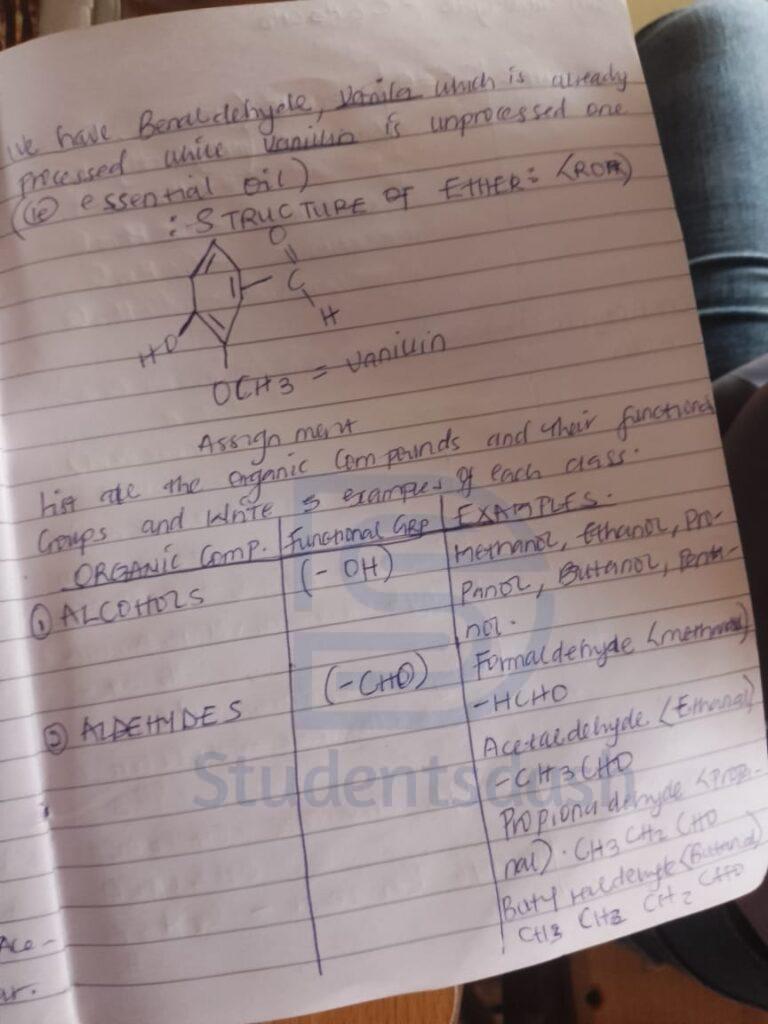 we have Benaldehyde, Vanila which is already
processed while vanillin is unprocessed one
(ie essential oil)
: STRUCTURE OF ETHER: (ROR)
O
C
H
HO
OCH3 = vanillin
Assignment
List all the organic compounds and their functional
Groups and write 5 examples of each class.
ORGANIC Comp. Functional GRP EXAMPLES.
① ALCOHOLS (- OH) Methanol, Ethanol, Pro-
Panol, Butanol, Penta-
nol.
② ALDEHYDES (-CHO) Formaldehyde (methanal)
-HCHO
Acetaldehyde (Ethanal)
-CH3CHO
Propionaldehyde (Propa-
nal). CH3 CH2 CHO
Butyraldehyde (Butanal)
CH3 CH2 CH2 CHO
Ace-
ar.
Studentsdash